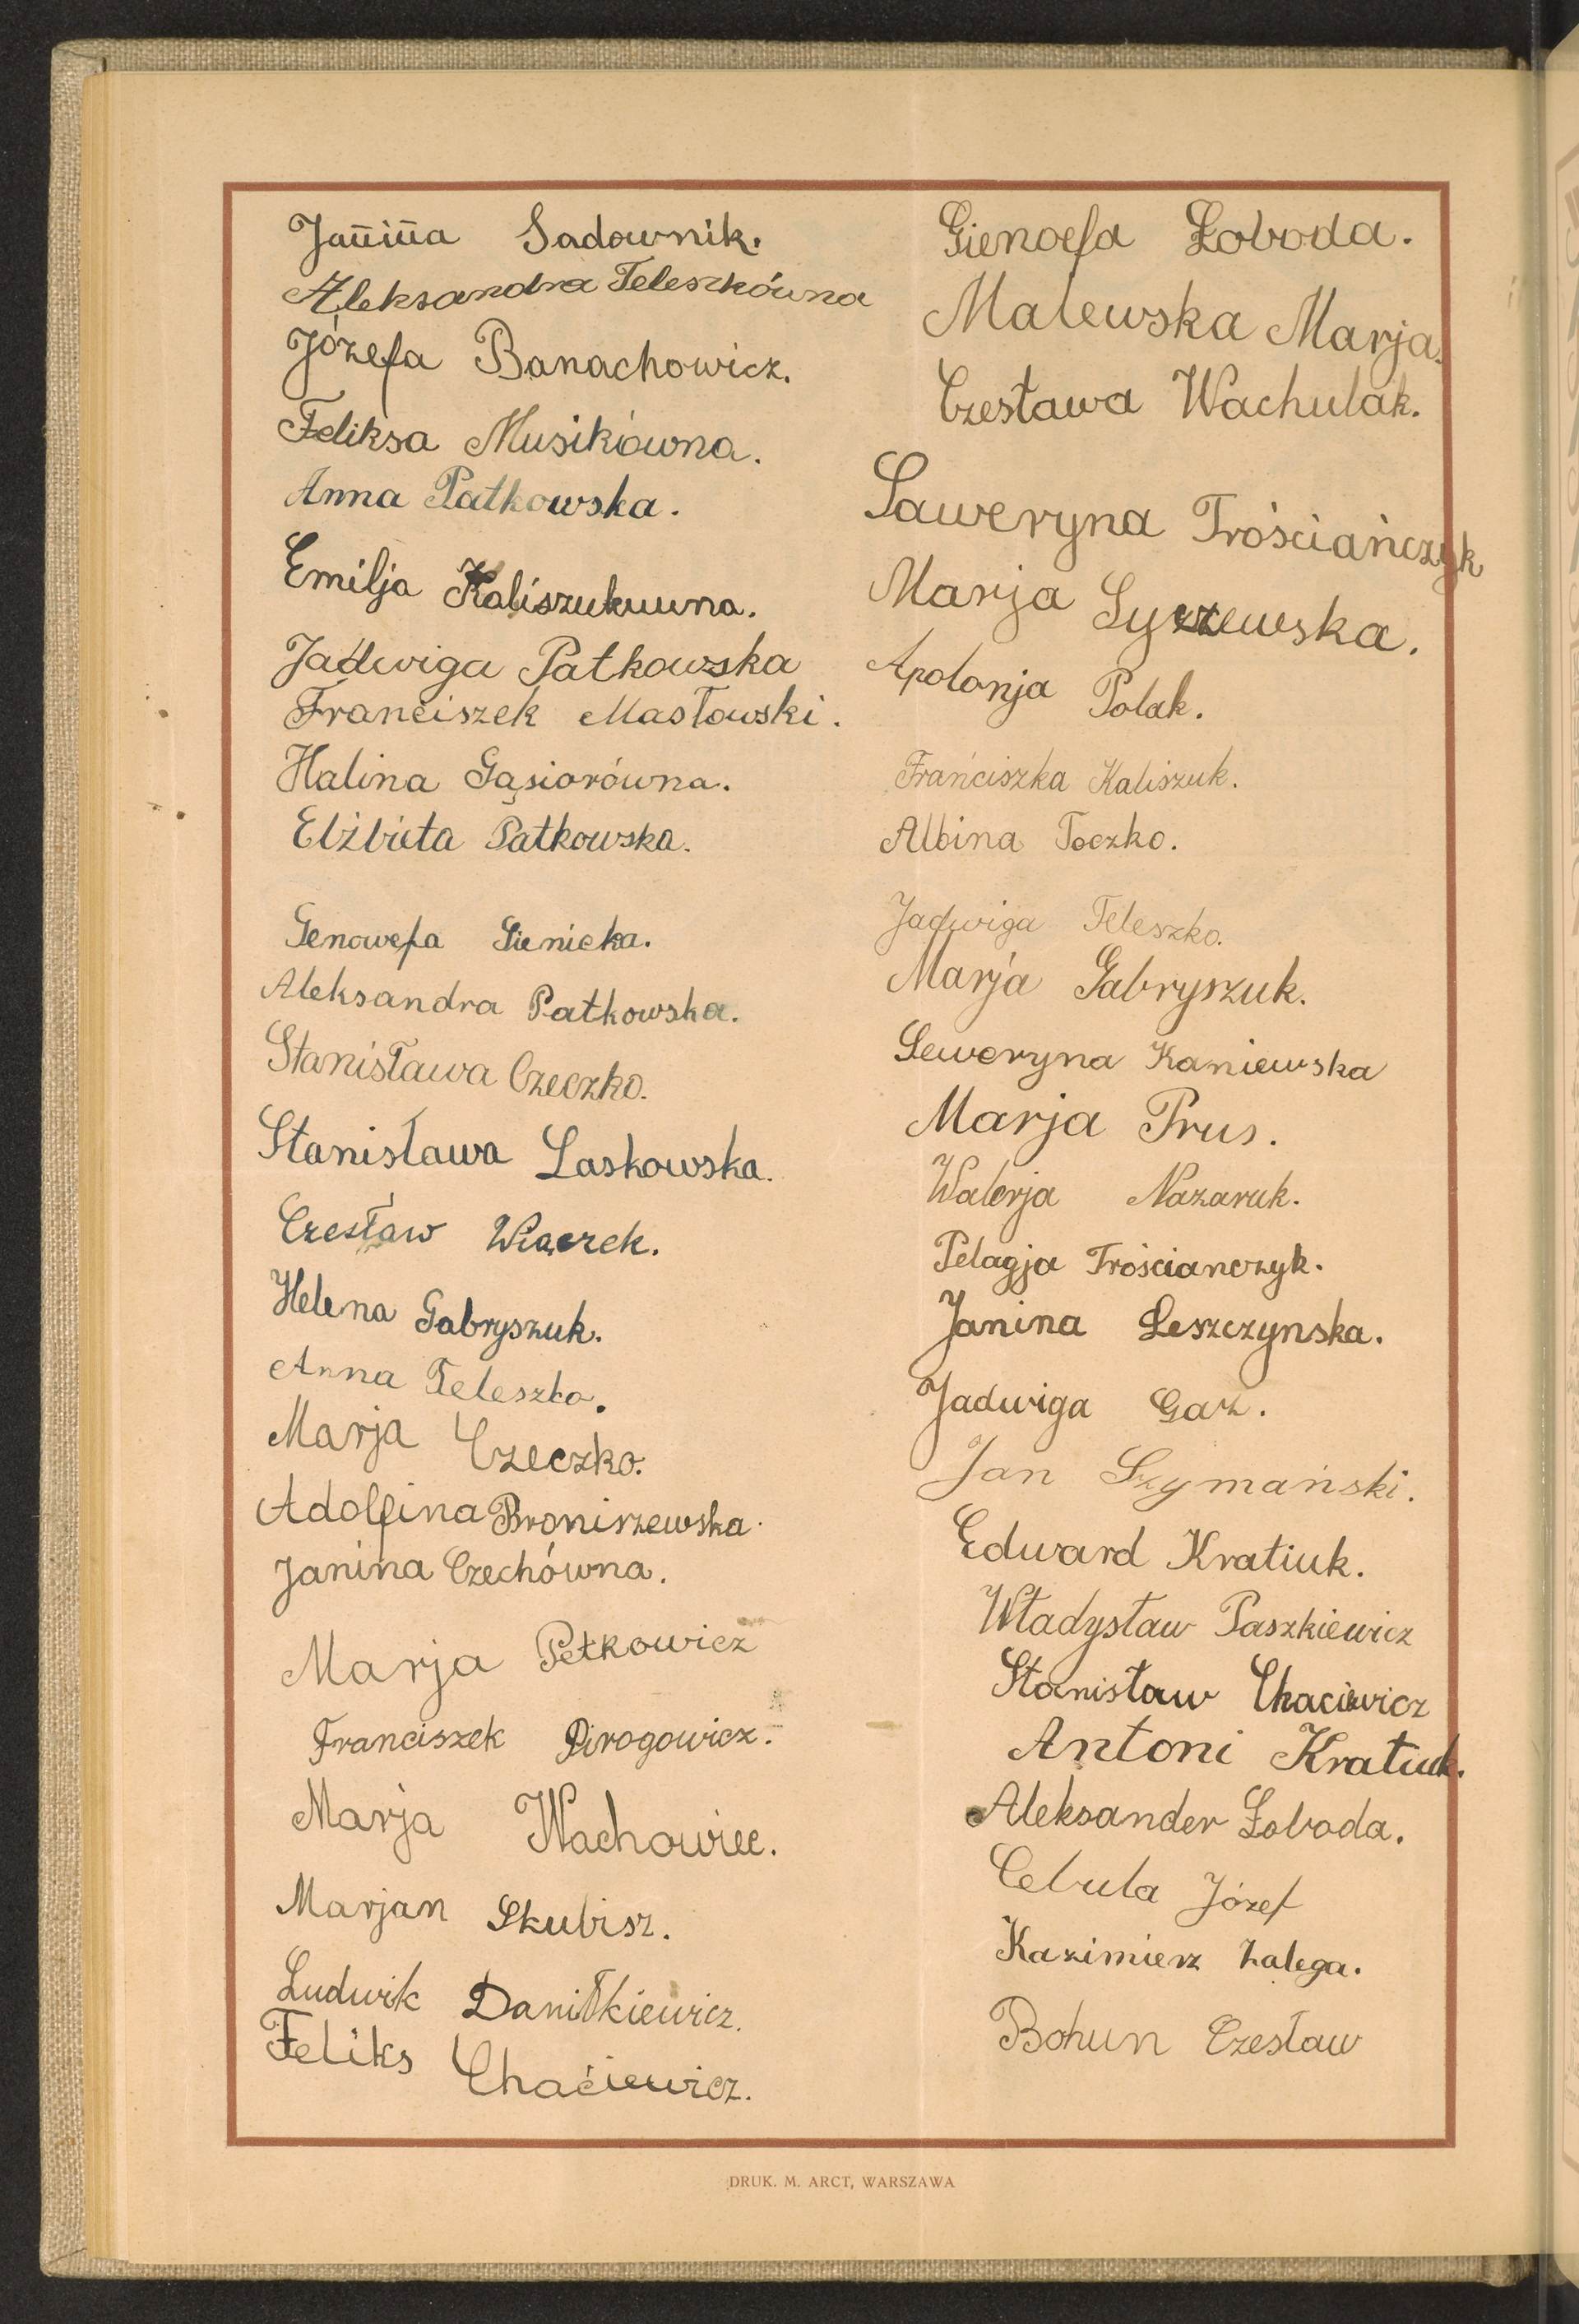 Janina Sadownik.
Aleksandra Teleszkówna
Józefa Banachowicz.
Feliksa Musikówna.
Anna Patkowska.
Emilja Kaliszukuwna.
Jadwiga Patkowska
Franciszek Masłowski.
Halina Gąsiorówna.
Elżbieta Patkowska.
Genowefa Sienicka.
Aleksandra Patkowska.
Stanisława Czeczko.
Stanisława Laskowska.
Czesław Wiączek.
Helena Gabryszuk.
Anna Teleszko.
Marja Czeczko.
Adolfina Broniszewska.
Janina Czechówna.
Marja Petkowicz
Franciszek Pirogowicz.
Marja Wachowiec.
Marjan Skubisz.
Ludwik Daniłkiewicz.
Feliks Chaćiewicz.
Gienoefa Łoboda.
Malewska Marja.
Czesława Wachulak.
Saweryna Trościańczyk
Marja Syczewska.
Apolonja Polak.
Frańciszka Kaliszuk.
Albina Toczko.
Jadwiga Teleszko.
Marja Gabryszuk.
Seweryna Kaniewska
Marja Prus.
Walerja Nazaruk.
Pelagja Trościanczyk.
Janina Leszczynska.
Jadwiga Gaz.
Jan Szymański.
Edward Kratiuk.
Władysław Paszkiewicz
Stanisław Chaciewicz
Antoni Kratiuk.
Aleksander Łoboda.
Cebula Józef
Kazimierz Zalega.
Bohun Czesław
DRUK. M. ARCT, WARSZAWA